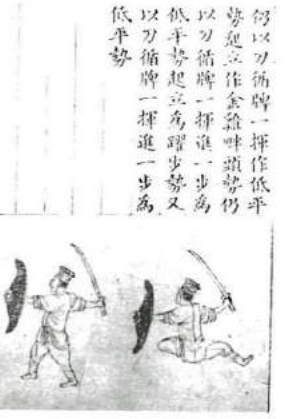 仍以刀循牌一揮作低平
勢起立作金雞畔頭勢仍
以刀循牌一揮進一步為
低平勢起立為躍步勢又
以刀循牌一揮進一步為
低平勢